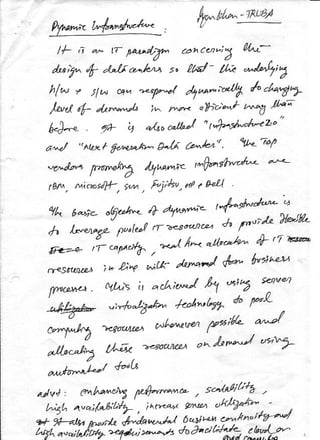 Ayon Khan - TRUBA
Dynamic Infrastructure :
It is an IT paradigm concerning the
design of data centers so that the underlying
h/w & s/w can respond dynamically to changing
level of demands in more efficient way than
before. It is also called "Infrastructure 2.0"
and "Next generation Data Center". The Top
vendors promoting dynamic infrastructure are
IBM, microsoft, sun, Fujitsu, HP & Dell.
The basic objective of dynamic infrastructure is
to leverage pooled IT resources to provide flexible
IT capacity, real time allocation of IT
resources in line with demand from business
processes. This is achieved by using server
virtualization technology to pool
computing resources whenever possible and
allocating these resources on demand using
automated tools
advt : enhancing performance, scalability,
high availability, increase server utilization.
It also provide fundamental business continuity and
high availability requirements to facilitate cloud or
grid computing